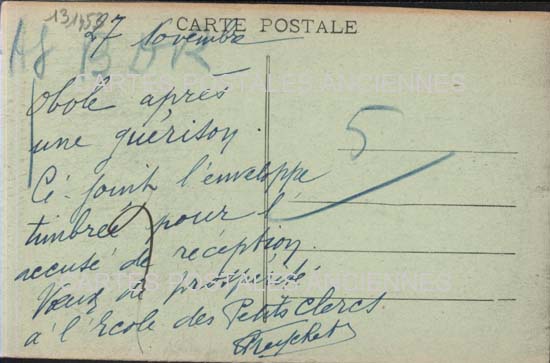 131458
CARTE POSTALE
27 Novembre
CARTES POSTALES ANCIENNES
Obole après
une guérison.
5
Ci-joint l'enveloppe
timbrée pour l'
accusé de réception.
CARTES POSTALES ANCIENNES
Vœux de prospérité
à l'École des Petits Clercs